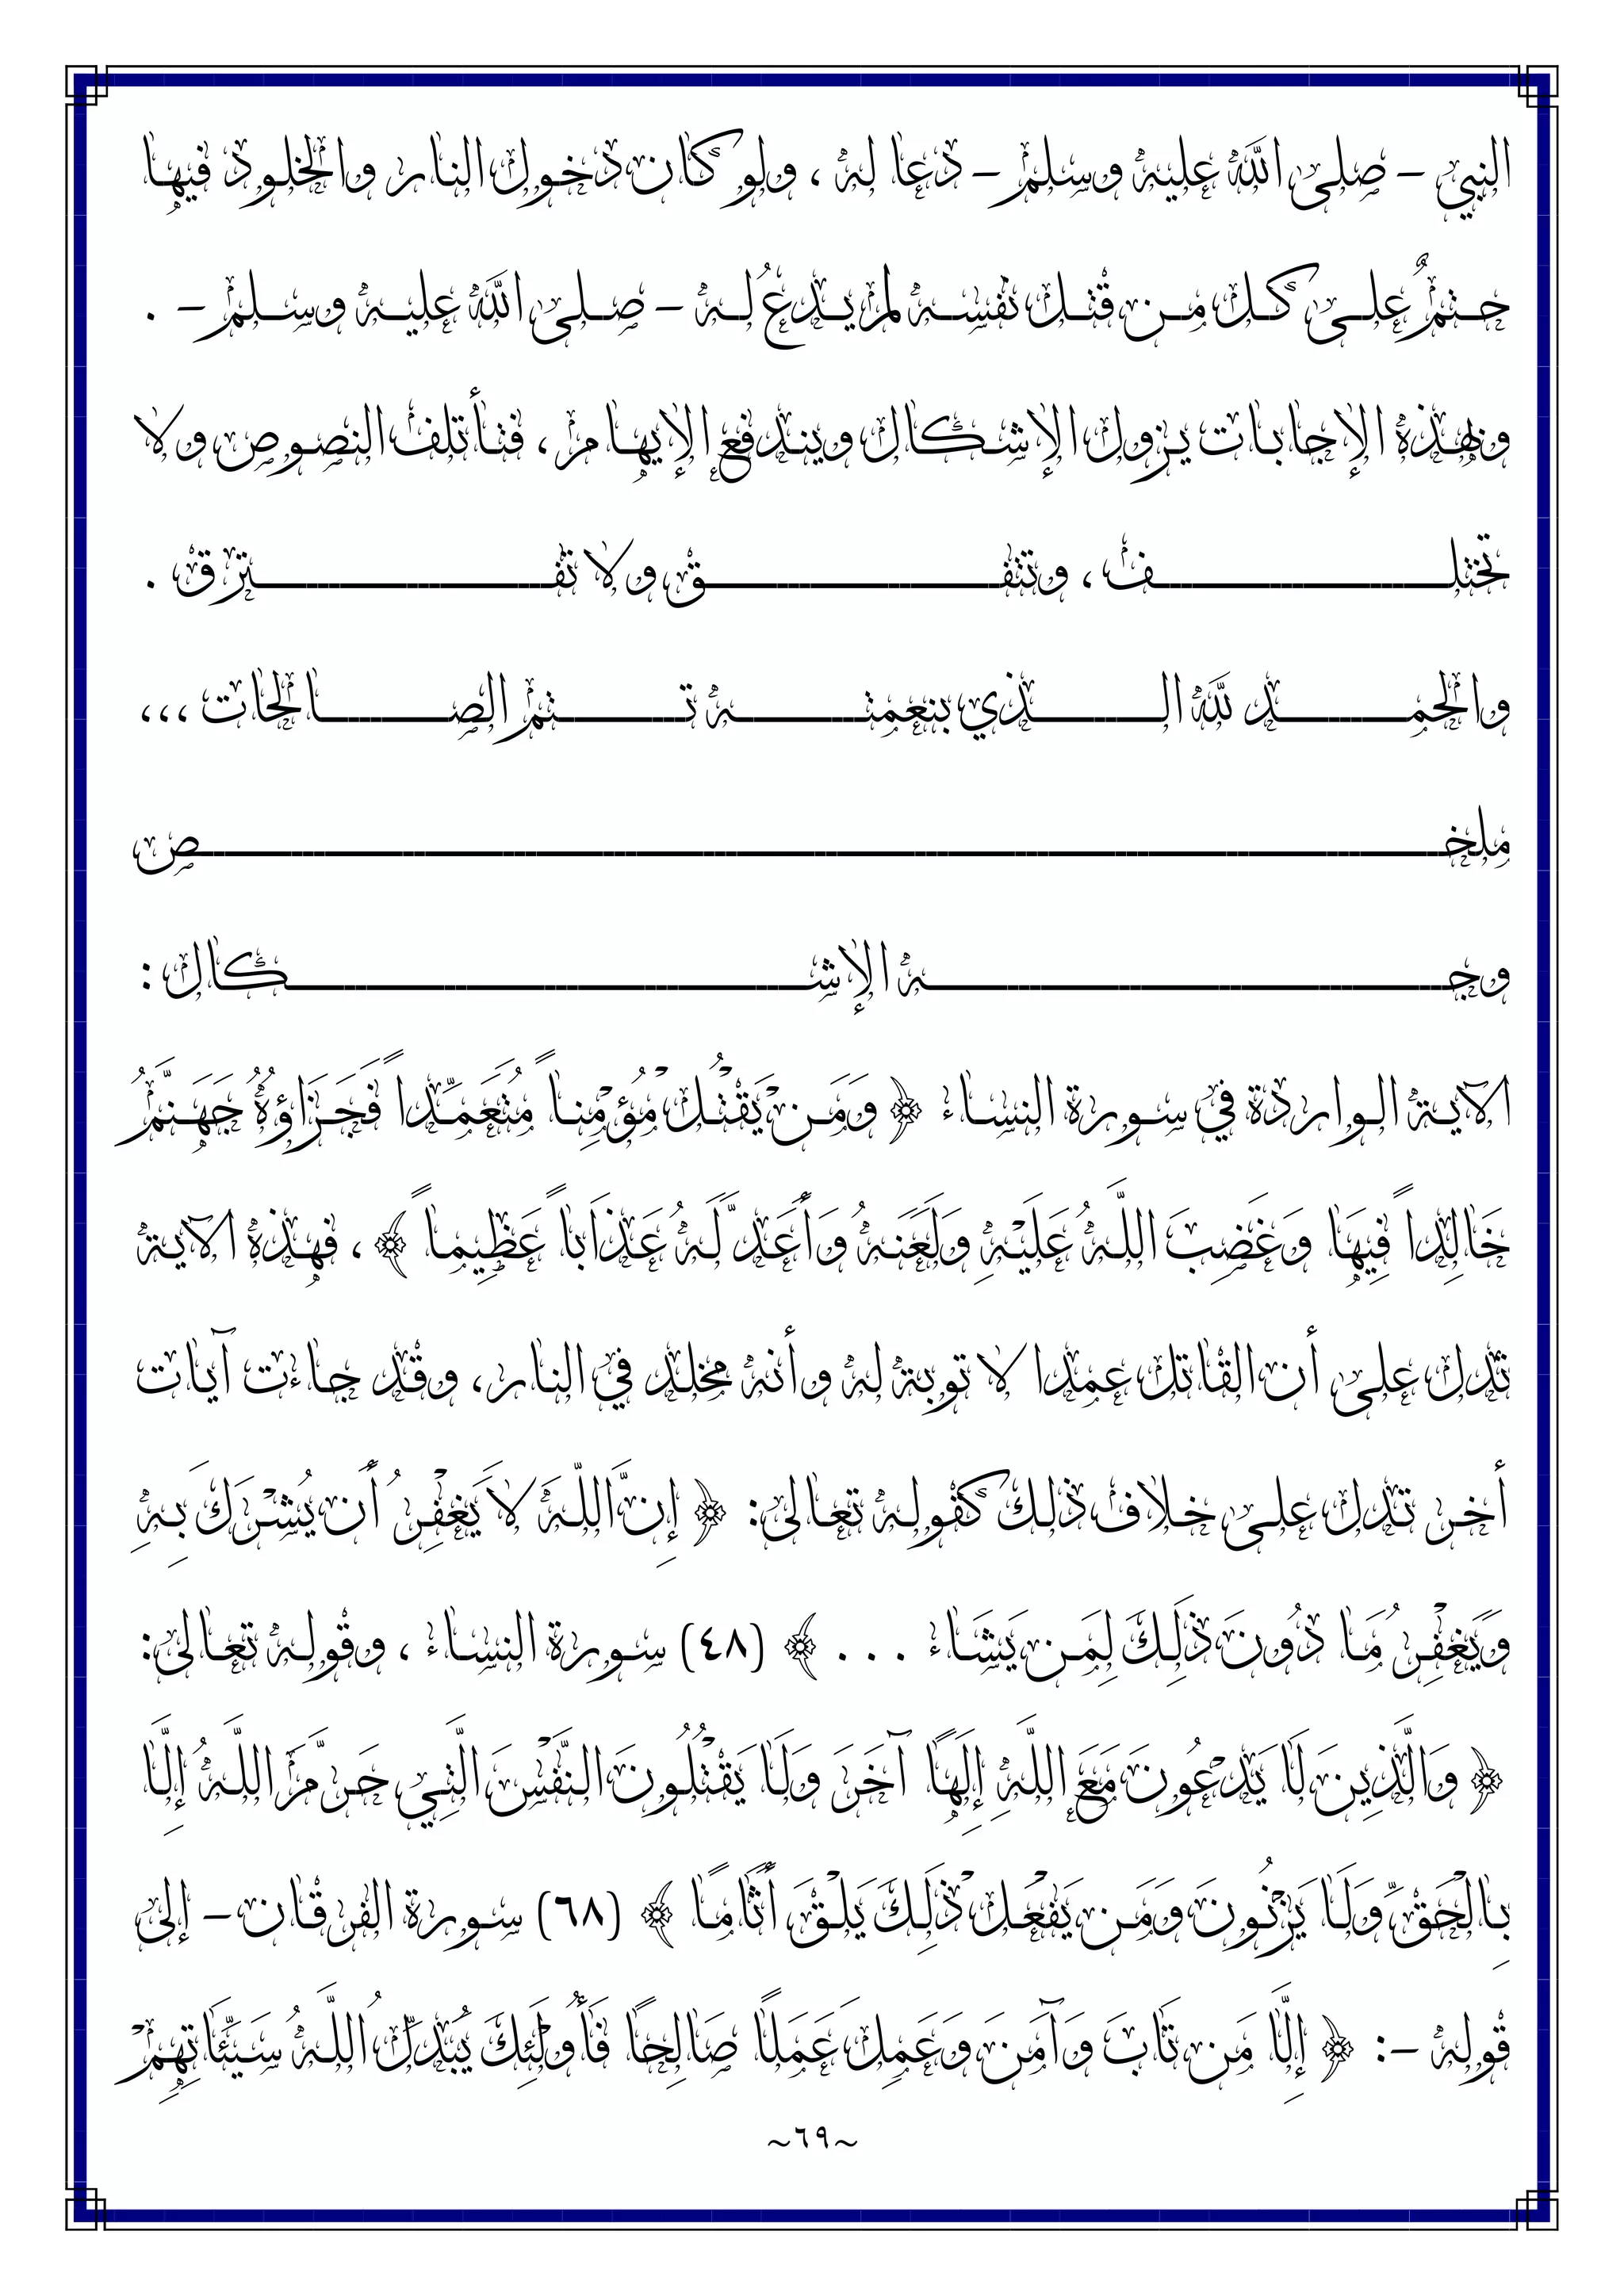 النبي - صلى الله عليه وسلم - دعا له ، ولو كان دخول النار والخلود فيها
حتمٌ على كل من قتل نفسه لم يدعُ له - صلى الله عليه وسلم - .
وبهذه الإجابات يزول الإشكال ويندفع الإيهام ، فتأتلف النصوص ولا
تختلف ، وتتفق ولا تفترق .
والحمد لله الذي بنعمته تتم الصالحات ،،،
ملخص
وجه الإشكال :
الآية الواردة في سورة النساء ﴿ وَمَن يَقْتُلْ مُؤْمِناً مُتَعَمِّداً فَجَزَاؤُهُ جَهَنَّمُ
خَالِداً فِيهَا وَغَضِبَ اللَّهُ عَلَيْهِ وَلَعَنَهُ وَأَعَدَّ لَهُ عَذَاباً عَظِيماً ﴾ ، فهذه الآية
تدل على أن القاتل عمدا لا توبة له وأنه مخلد في النار، وقد جاءت آيات
أخر تدل على خلاف ذلك كقوله تعالى: ﴿ إِنَّ اللَّهَ لاَ يَغْفِرُ أَن يُشْرَكَ بِهِ
وَيَغْفِرُ مَا دُونَ ذَلِكَ لِمَن يَشَاء . . . ﴾ (٤٨) سورة النساء ، وقوله تعالى:
﴿ وَالَّذِينَ لَا يَدْعُونَ مَعَ اللَّهِ إِلَهًا آخَرَ وَلَا يَقْتُلُونَ النَّفْسَ الَّتِي حَرَّمَ اللَّهُ إِلَّا
بِالْحَقِّ وَلَا يَزْنُونَ وَمَن يَفْعَلْ ذَلِكَ يَلْقَ أَثَامًا ﴾ (٦٨) سورة الفرقان - إلى
قوله - : ﴿ إِلَّا مَن تَابَ وَآمَنَ وَعَمِلَ عَمَلًا صَالِحًا فَأُولَئِكَ يُبَدِّلُ اللَّهُ سَيِّئَاتِهِمْ
~٦٩~